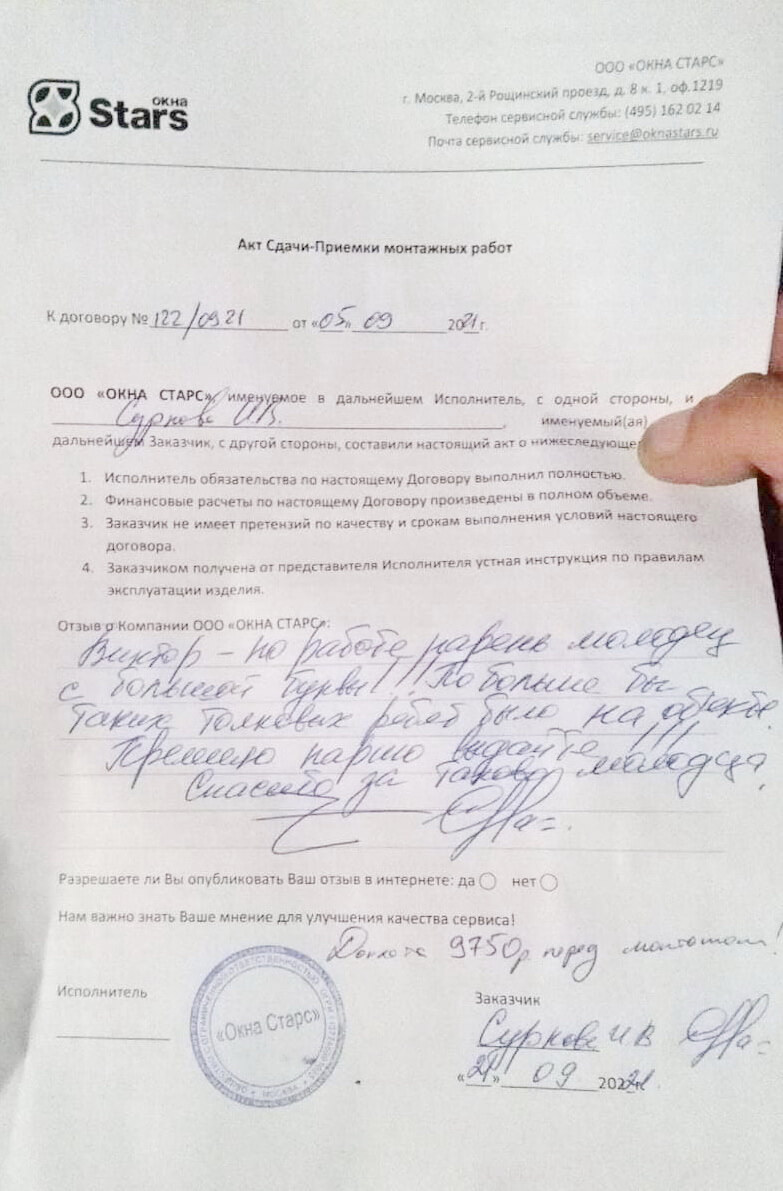 окна
Stars
ООО «ОКНА СТАРС»
г. Москва, 2-й Рощинский проезд, д. 8 к. 1, оф.1219
Телефон сервисной службы: (495) 162 02 14
Почта сервисной службы: service@oknastars.ru
Акт Сдачи-Приемки монтажных работ
К договору № 122/0921 от «05» 09 2021г.
ООО «ОКНА СТАРС», именуемое в дальнейшем Исполнитель, с одной стороны, и
Суркова И.В. , именуемый(ая)
дальнейшем Заказчик, с другой стороны, составили настоящий акт о нижеследующе
1. Исполнитель обязательства по настоящему Договору выполнил полностью.
2. Финансовые расчеты по настоящему Договору произведены в полном объеме.
3. Заказчик не имеет претензий по качеству и срокам выполнения условий настоящего
договора.
4. Заказчиком получена от представителя Исполнителя устная инструкция по правилам
эксплуатации изделия.
Отзыв о Компании ООО «ОКНА СТАРС»:
Виктор – по работе парень молодец
с большой буквы!!! По больше бы
таких толковых ребят было на объекте.
Премию парню выдайте!!!
Спасибо за такова молодца.
Разрешаете ли Вы опубликовать Ваш отзыв в интернете: да нет
Нам важно знать Ваше мнение для улучшения качества сервиса!
9750р перед монтажом!
Исполнитель
«Окна Старс»
МОСКВА
Заказчик
Суркова И В
«21» 09 2021г.